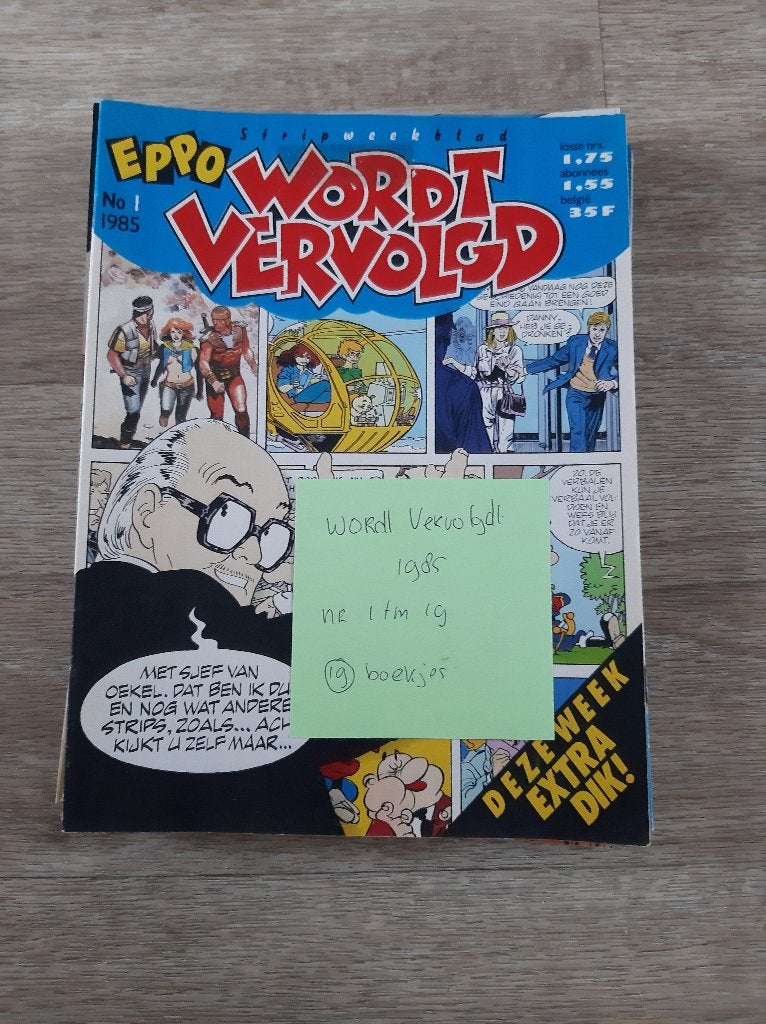 Stripweekblad
EPPO
WORDT
VERVOLGD
No 1
1985
losse nrs.
1,75
abonnees
1,55
belgië
35F
VANDAAG NOG DEZE
GESCHIEDENIS TOT EEN GOED
EIND GAAN BRENGEN!
DANNY,
HEB JE GE-
DRONKEN?
ZO, DE
VERBALEN
KUN JE
VERBAAL VOL-
DOEN EN
WEES BLIJ
DAT JE ER
ZO VANAF
KOMT.
WORDt Vervolgd!
1985
nr 1 t/m 19
19 boekjes
MET SJEF VAN
OEKEL. DAT BEN IK DU
EN NOG WAT ANDERE
STRIPS, ZOALS... ACH
KIJKT U ZELF MAAR...
DEZE WEEK
EXTRA
DIK!